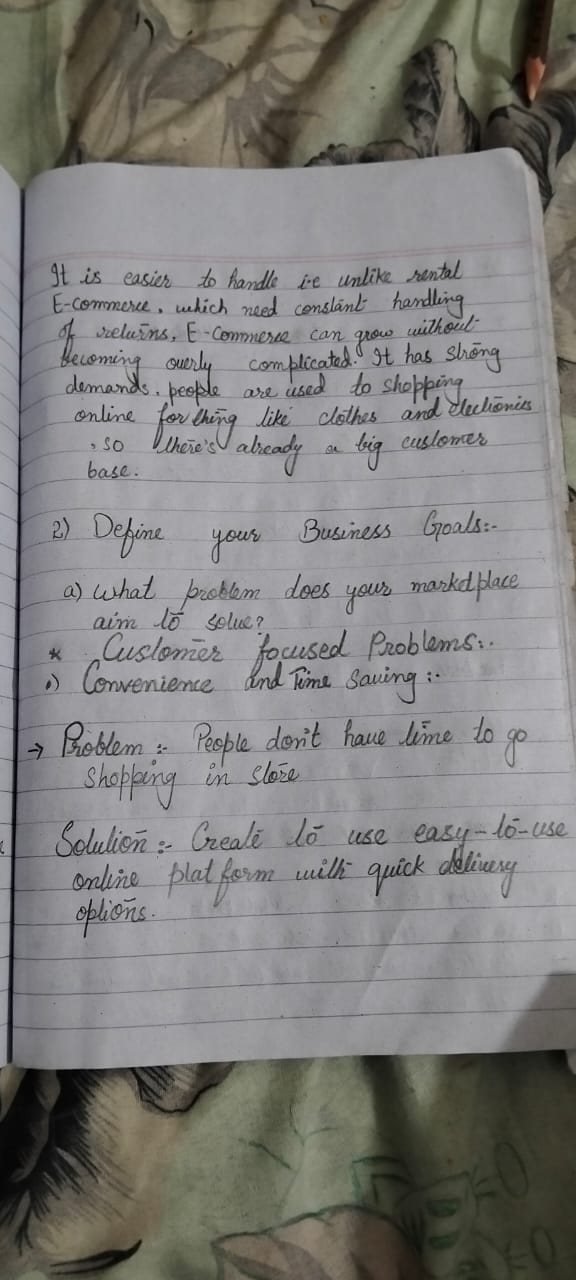 It is easier to handle i.e unlike rental
E-commerce, which need constant handling
of returns, E-Commerce can grow without
becoming overly complicated. It has strong
demands, people are used to shopping
online for thing like clothes and electronics
, so there's already a big customer
base.
2) Define your Business Goals:-
a) What problem does your marketplace
aim to solve?
* Customer focused Problems:-
•) Convenience and Time Saving :-
→ Problem :- People don't have time to go
shopping in store
Solution :- Create to use easy-to-use
online platform with quick delivery
options.